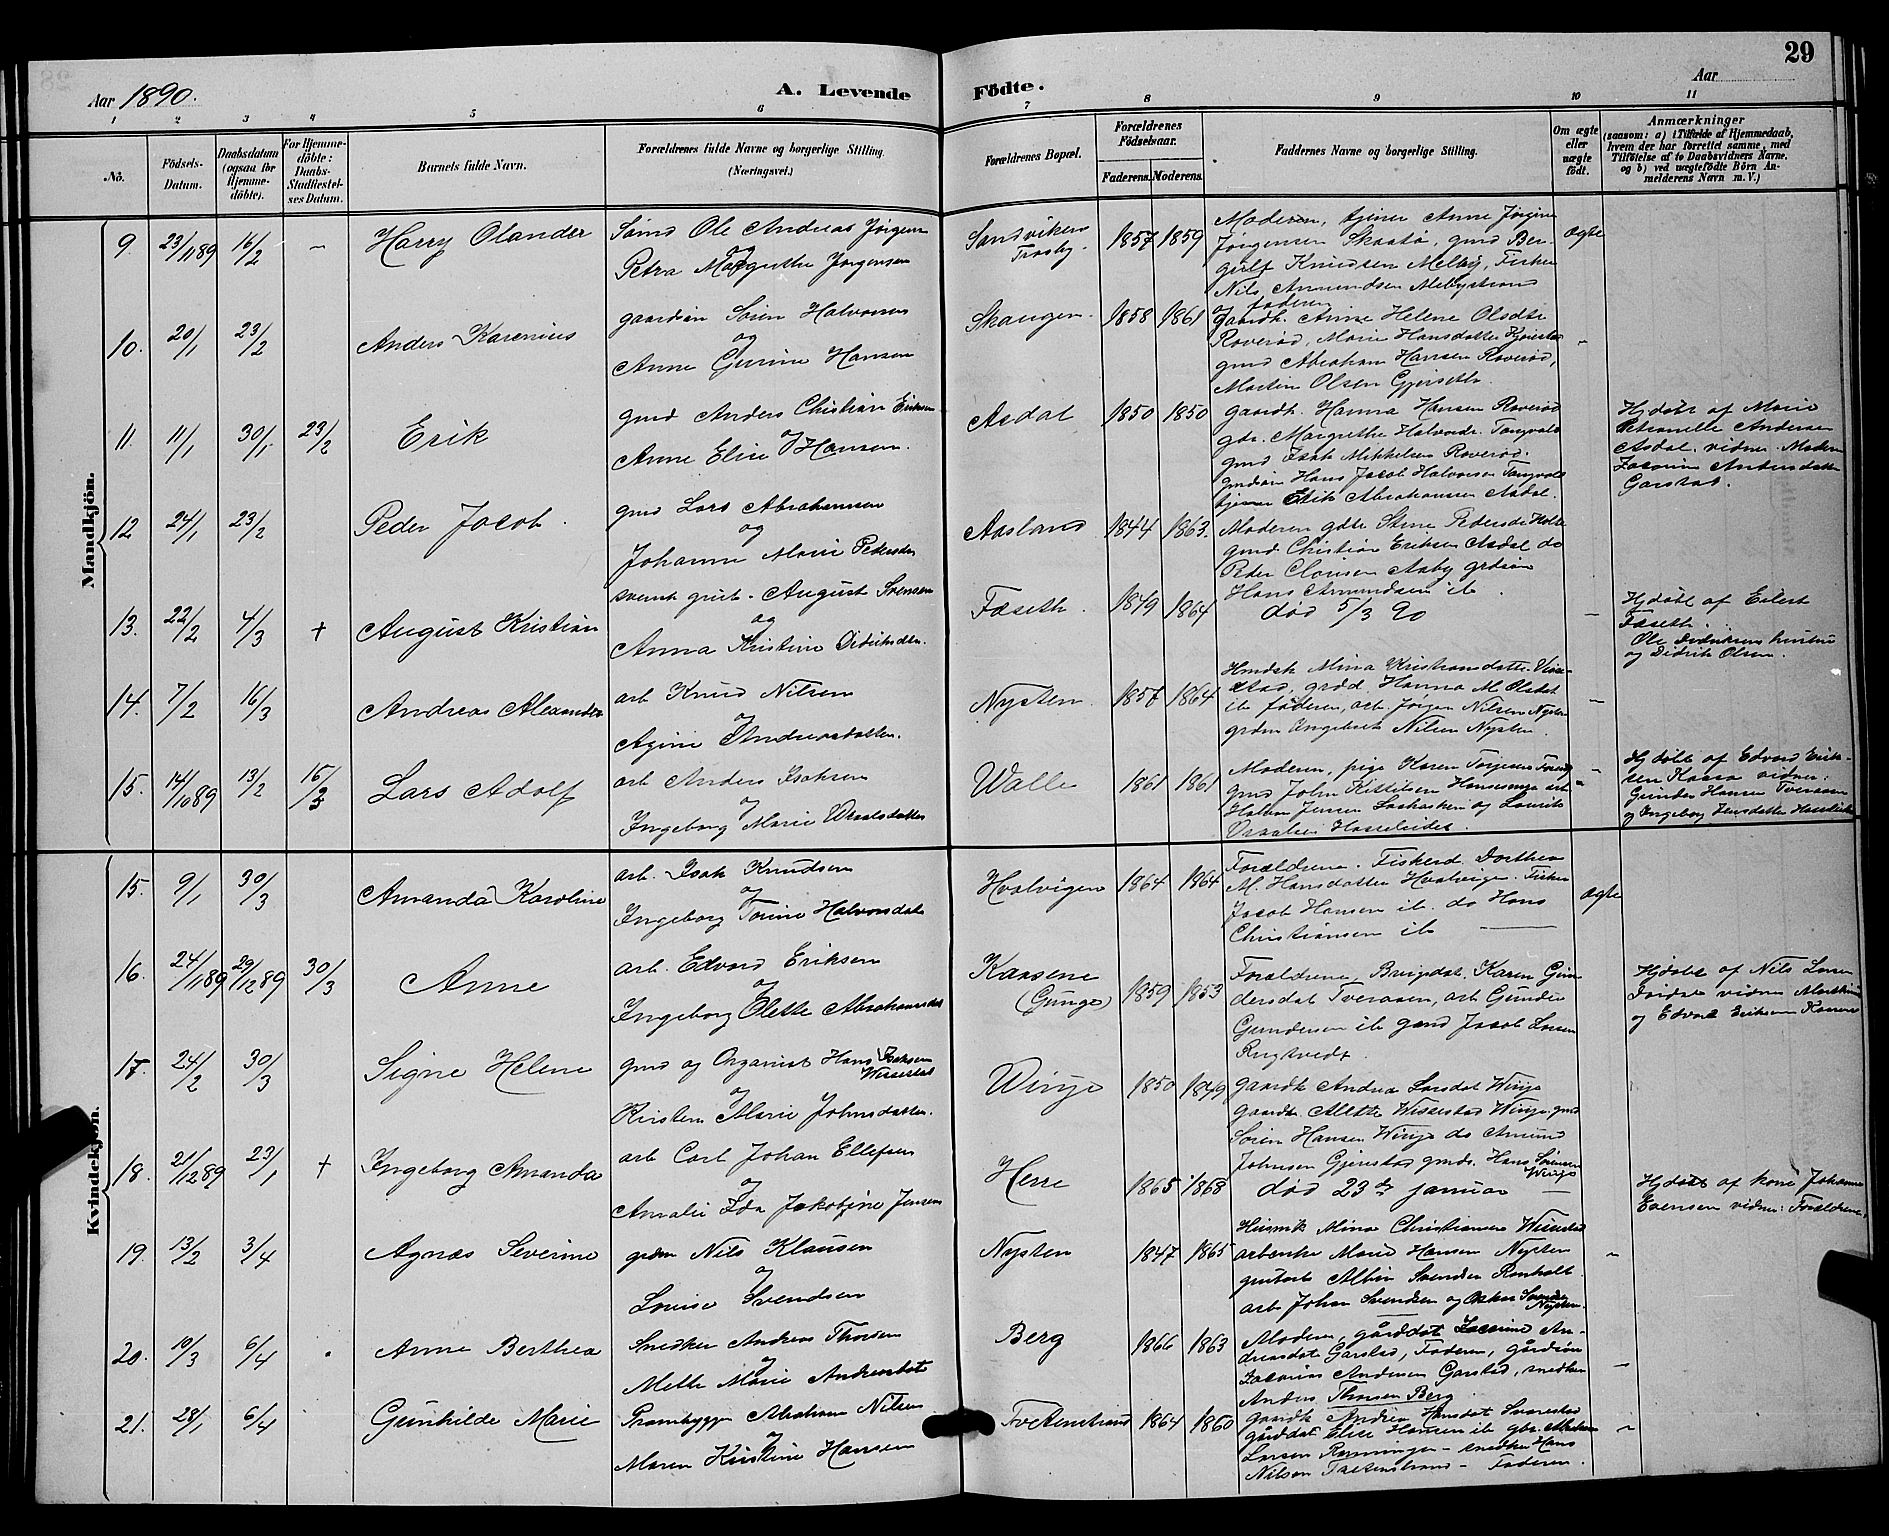 29
Aar 1890.
A. Levende
Födte.
Aar
1 2 3 4 5 6 7 8 9 10 11
No.
Födsels-
Datum.
Daabsdatum
(ogsaa for
Hjemme-
döbte).
For Hjemme-
döbte:
Daabs-
Stadfæstel-
ses Datum.
Barnets fulde Navn.
Forældrenes fulde Navne og borgerlige Stilling.
(Næringsvei.)
Forældrenes Bopæl.
Forældrenes
Födselsaar.
Faderens.
Moderens.
Faddernes Navne og borgerlige Stilling.
Om ægte
eller
uægte
födt.
Anmærkninger
(saasom: a) i Tilfælde af Hjemmedaab,
hvem der har forrettet samme, med
Tilföielse af to Daabsvidners Navne,
og b) ved uægtefödte Börn An-
melderens Navn m. V.)
Mandkjön.
9. 23/11 89 16/2 – Harry Olander
Sömd Ole Andreas Jörgen
og
Petra Margrethe Jørgensen
Sandviken
Trosby
1857 1859
Moderen, tjener Anne Jörgine
Jørgensen Skaatø, gmd Ber-
gulf Knudsen Melby, Fisker
Nils Amundsen Melbystrand
faderen
ægte
10. 20/1 23/2 Anders Karenius
gaardsøn Søren Halvorsen
og
Anne Gurine Hansen
Skaugen
1858 1861
gaardk. Anne Helene Olsdtr
Roverød, Marie Hansdatter
gmd Abraham Hansen Roverød,
Martin Olsen Gjerseth.
11. 11/1 30/1 23/2 Erik
gmd Anders Christian Eriksen
og
Anne Elise Hansen.
Asdal
1850 1850
gaardk. Hanna Hansen Roverød
gdr. Margrethe Halvorsd. Tangvald
gmd Isak Mikkelsen Roverød.
gmdsøn Hans Jacob Halvorsen Tangvald
tjener Erik Abrahamsen Asdal.
Hjdøbt af Marie
Petronelle Andersen
Asdal. vidner. Moderen
Andersdatter
Garstad.
12 24/1 23/2 Peder Jacob.
gmd Lars Abrahamsen
og
Johanne Marie Pedersdtr
Aasland
1844 1863.
Moderen gdtr Stine Pedersdtr Holte
gmd Christian Eriksen Asdal do
Peder Clausen Aaby grdsøn
Hans Amundsen ib.
13. 22/2 4/3 + August Kristian
svensk grub. August Svensen
og
Anna Kristine Didriksdtr.
Fæseth.
1849 1864
død 5/3 90
Hjdøbt af Eilert
Fæseth.
Ole Didriksens hustru
og Didrik Olsen.
14. 7/2 16/3 Andreas Alexander
arb Knud Nilsen
og
Agine Andreasdatter.
Nysten.
1857 1864
Hmdsk Mina Kristiansdatter Visse-
stad, grdd. Hanna M. Olsdat
ib faderen, arb. Jørgen Nilsen Nysten
grdm Engebret Nilsen Nysten.
15. 14/10 89 13/2 16/3 Lars Adolf
arb Anders Isaksen
og
Ingeborg Marie Draalsdatter
Walle
1861 1861
Moderen, pige Karen Torjesen
gmd John Kittilsen arb
Halvor Jensen og Laurits
Draalsen Hasseleidet.
Hjdøbt af Edvard Erik-
sen Kaasa vidner:
Gunder Hansen Tveraaen
og Ingeborg Jensdatter
Kvindekjön.
15. 9/1 30/3 Amanda Karoline
arb. Isak Knudsen
og
Ingeborg Torine Halvorsdat
Hvalvigen
1864 1864
Forældrene. Fiskerd. Dorthea
M. Hansdatter Hvalvigen. Fisker
Jacob Hansen ib. do Hans
Christiansen ib
ægte
16. 24/11 89 29/12 89 30/3 Anne
arb. Edvard Eriksen
og
Ingeborg Olette Abrahamsdat
Kaasene
(Gunge)
1859 1853
Forældrene, Karen Gun-
dersdat Tveraaen, arb Gunder
Gundersen ib gmd Jacob Larsen
Rugtvedt.
Hjdøbt af Nils Larsen
vidner
og Edvard Eriksen Kaasene
17. 24/2 30/3 Signe Helene
gmd og Organist Hans Isaksen
Wissestad
og
Kirsten Marie Johnsdatter.
Winje
1850 1849
gaardk Andrea Larsdat Winje
gaardk Alette Wissestad Winje. gmd
Søren Hansen Winje do Amund
Johnsen Gjerestad gmds. Hans Sørensen
Winje
18. 21/12 89 23/1 + Ingeborg Amanda
arb Carl Johan Ellefsen
og
Amalie Ida Jakobine Jensen
Herre
1865 1868
død 23de januar
Hjdøbt af kone Johanne
Evensen vidner: Forældrene.
19. 13/2 3/4 Agnæs Severine
grdm Nils Klausen
og
Louise Svendsen
Nysten
1847 1865
Husmk Mina Christiansen Wissestad
arbenke Marie Hansen Nysten
grubarb Albin Svendsen Ronholt
arb Johan Svendsen og Oskar Svendsen
Nysten.
20. 10/3 6/4 Anne Berthea
Snedker Andreas Thorsen
og
Mette Marie Andreasdat
Berg
1866 1863
Moderen, gårddat Jacobine An-
dreasdat Garstad, Faderen, gårdsøn
Zacarias Andersen Garstad, snedker
Anders Thorsen Berg
21. 28/1 6/4 Gunhilde Marie
Prambygger Abraham Nilsen
og
Maren Kristine Hansen
Tvetenstrand
1864 1860
gaardk Andrea Hansdat
gårddat Elise Hansen ib gbr. Abraham
Larsen Rønningen – snedker Hans
Nilsen Tvetenstrand – Faderen.